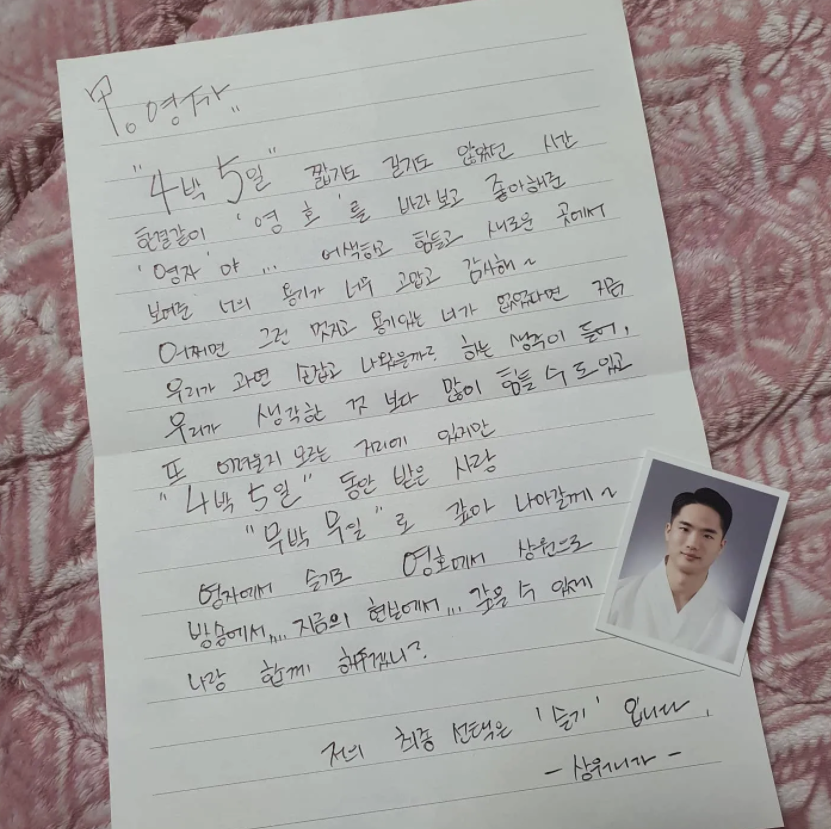 To. 영자
"4박 5일" 짧기도 길기도 않았던 시간
한결같이 '영호'를 바라보고 좋아해준
'영자'야... 어색하고 힘들고 새로운 곳에서
보여준 너의 용기가 너무 고맙고 감사해~
어쩌면 그런 멋지고 용기있는 너가 없었다면 지금
우리가 과연 손잡고 나왔을까? 하는 생각이 들어,
우리가 생각한 것 보다 많이 힘들 수도 있고
또 어려울지 모르는 거리에 있지만
"4박 5일" 동안 받은 사랑
"무박 무일"로 갚아 나아갈께~
영자에서 슬기로 영호에서 상원으로
방송에서.... 지금의 현실에서... 같은 수 있게
나랑 함께 해주겠니?
저의 최종 선택은 '슬기' 입니다.
- 상워니가 -